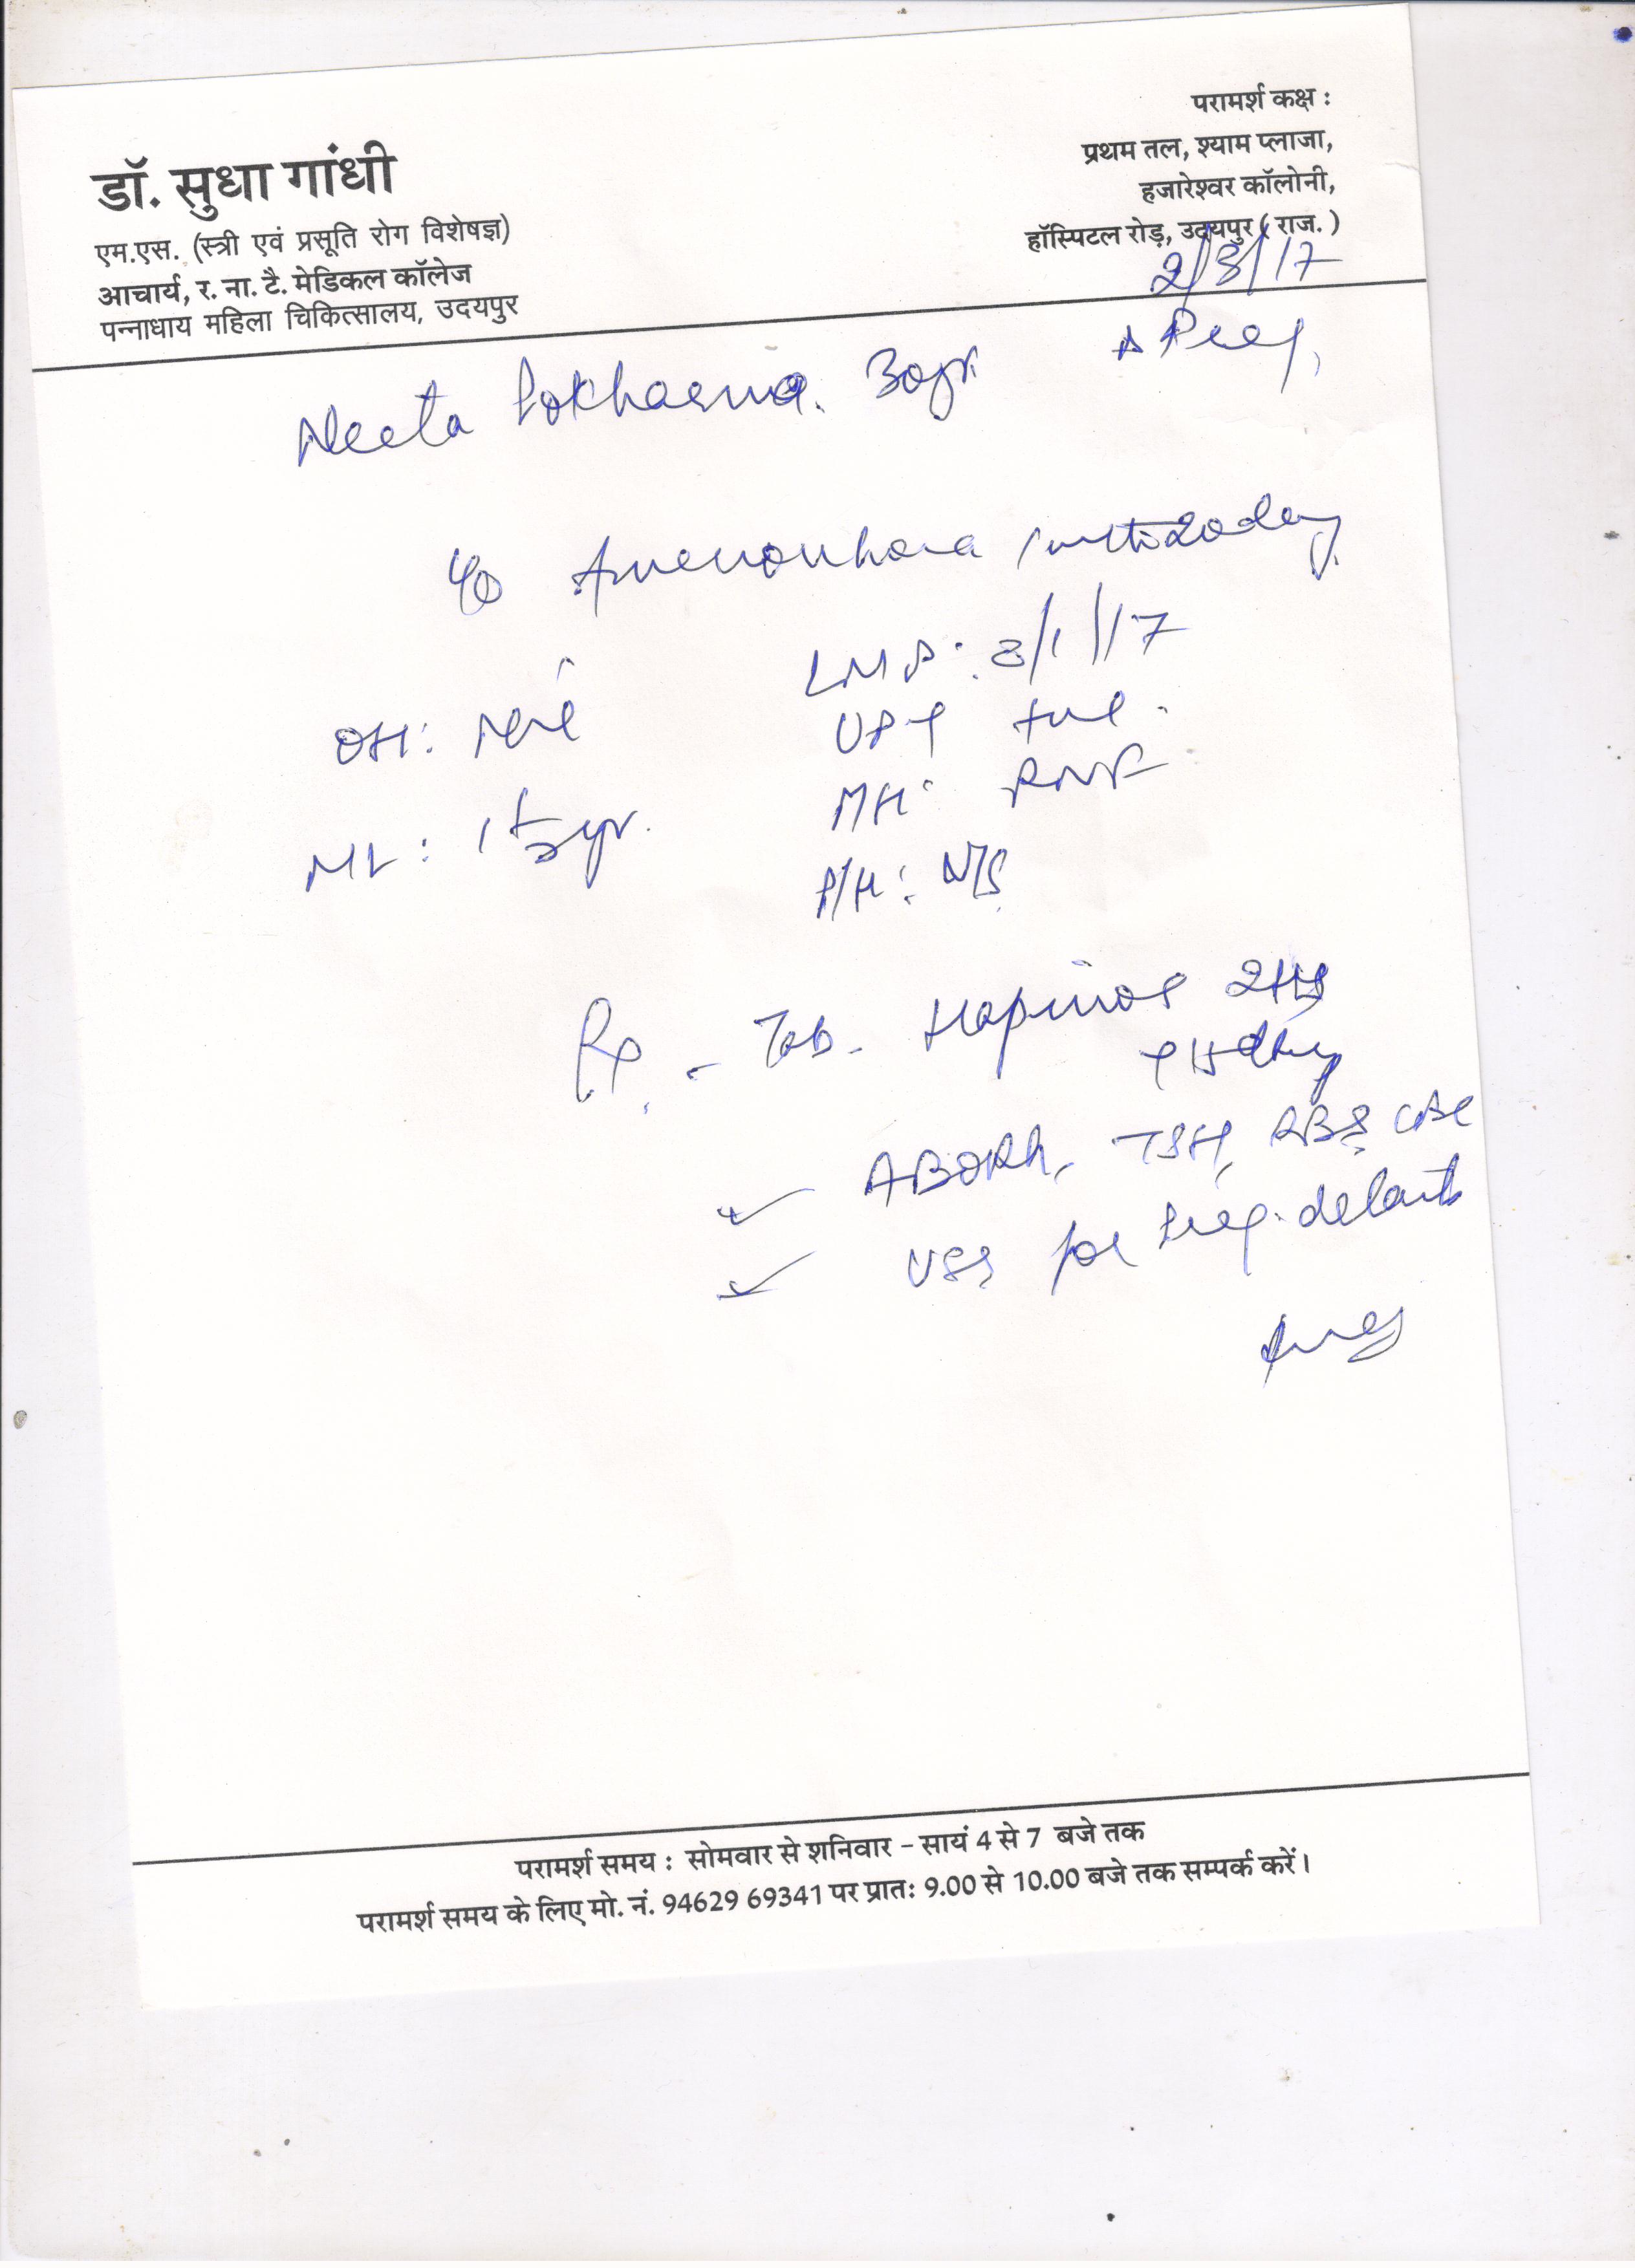 परामर्श कक्ष :
प्रथम तल, श्याम प्लाजा,
हजारेश्वर कॉलोनी,
हॉस्पिटल रोड़, उदयपुर ( राज. )
डॉ. सुधा गांधी
एम.एस. (स्त्री एवं प्रसूति रोग विशेषज्ञ)
आचार्य, र. ना. टै. मेडिकल कॉलेज
पन्नाधाय महिला चिकित्सालय, उदयपुर
2/3/17
Neeta 30yr. Preg.
C/O 20day
LMP: 3/1/17
OH: UPT +ve.
MH: RNF
ML: 1 1/2 yr.
P/H: N/S
Rx - Tab.
ABORh, TSH, RBS, CBC
USG for Preg.
परामर्श समय : सोमवार से शनिवार - सायं 4 से 7 बजे तक
परामर्श समय के लिए मो. नं. 94629 69341 पर प्रातः 9.00 से 10.00 बजे तक सम्पर्क करें।